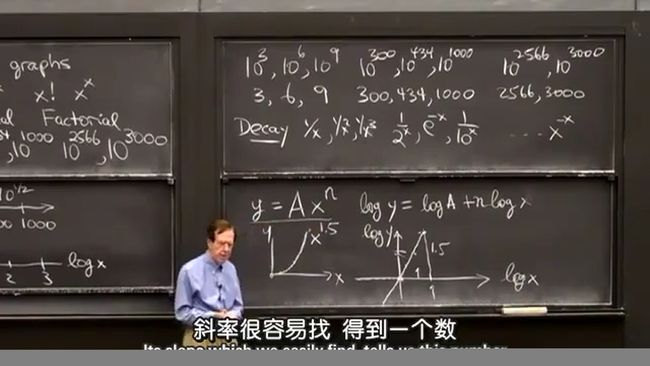 graphs
x! x^x
Factorial
1000 10^2566, 10^3000
10^1/2
1000
2 3 log x
10^3, 10^6, 10^9 10^300, 10^434, 10^1000 10^2566, 10^3000
3, 6, 9 300, 434, 1000 2566, 3000
Decay 1/x, 1/x^2, 1/x^3 1/2^x, e^-x, 1/10^x ... x^-x
y = A x^n log y = log A + n log x
y x^1.5 x
log y 1.5 1 1 log x
斜率很容易找 得到一个数
Its slope which we easily find, tells us this number